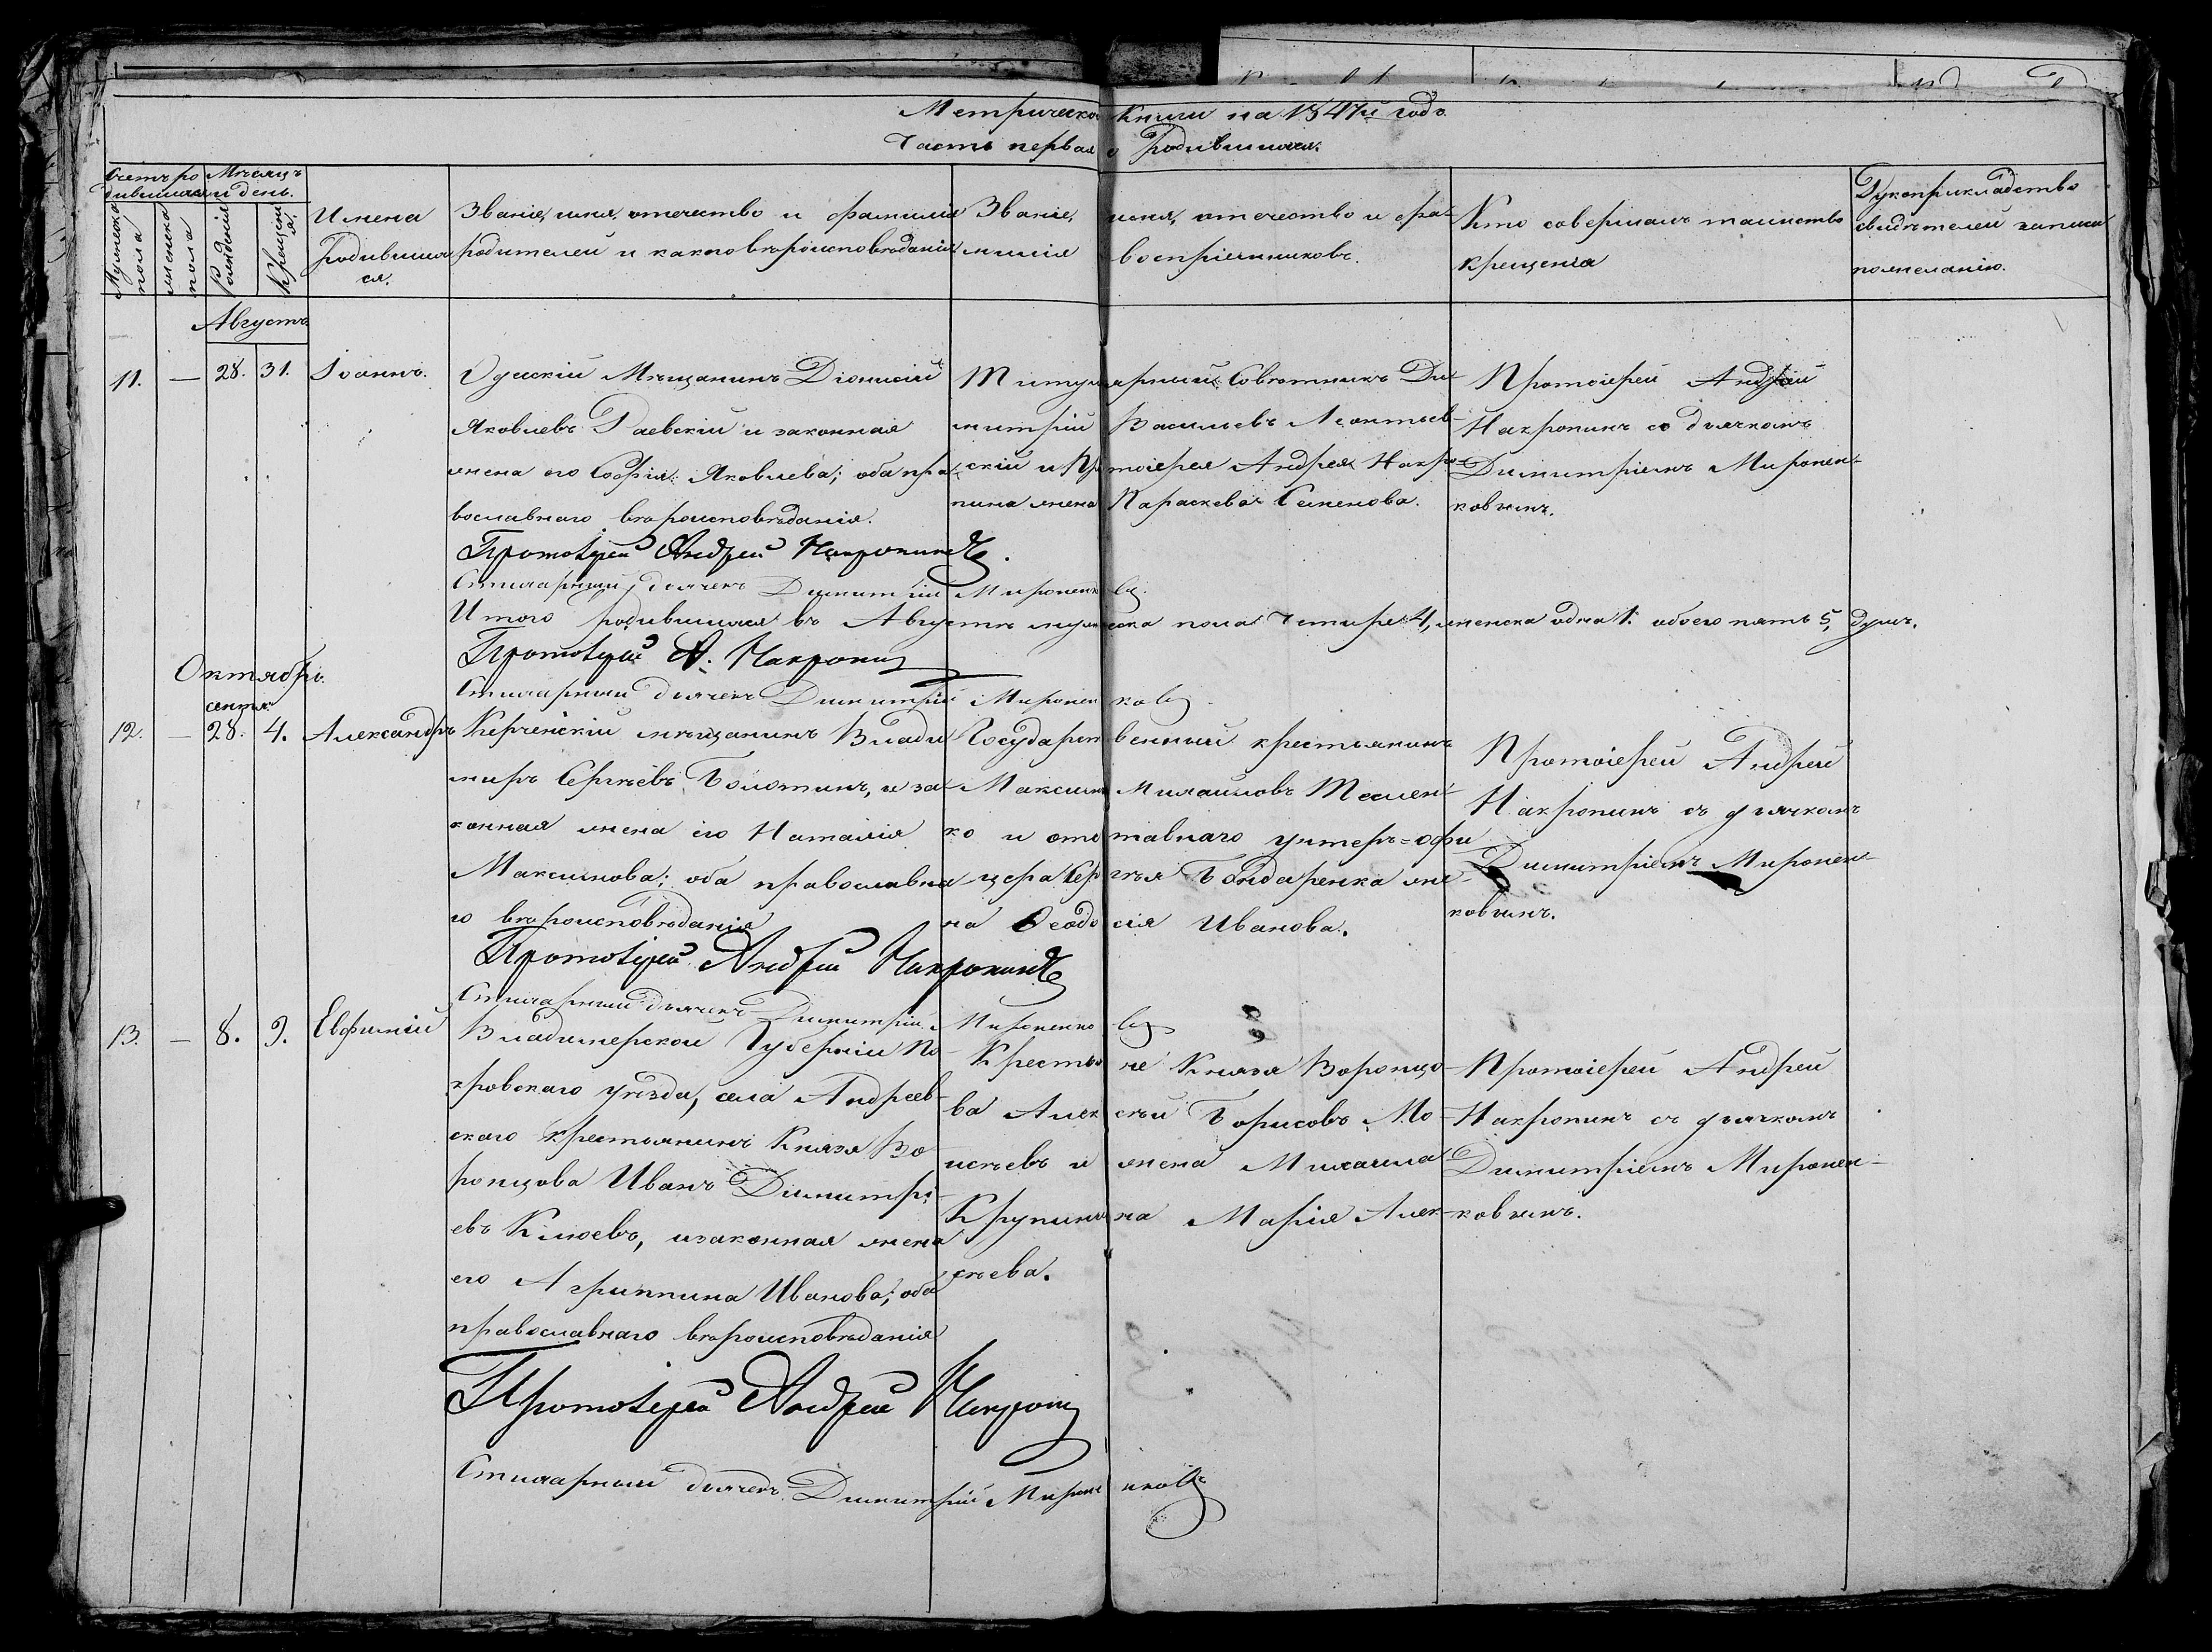 Метрической Книги на 1847й годъ
Часть первая о Родившихся.
Счетъ родившихся
Мѣсяцъ и день.
Мужеска пола
женска пола
Рожденія
Крещенія
Имена
Родившихся.
Званіе, имя, отечество и фамилія
родителей и какого вѣроисповѣданія
Званіе, имя, отечество и фамилія
воспріемниковъ.
Кто совершалъ таинство
крещенія
Рукоприкладство
свидѣтелей записи
по желанію.
Августъ
11. — 28. 31. Іоаннъ.
Мѣщанинъ Діонисій
Яковлевъ Раевскій и законная
жена его Софія Яковлева; оба пра-
вославнаго вѣроисповѣданія.
Титулярный Совѣтникъ Ди-
митрій Васильевъ Леонтьев-
скій и Протоіерея Андрея Накро-
пина жена Параскева Семенова.
Протоіерей Андрей
Накропинъ со дьячкомъ
Димитріемъ Миронен-
ковымъ.
Протоіерей Андрей Накропинъ.
дьячекъ Димитрій Мироненковъ
Итого родившихся въ Августѣ мужеска пола Четыре 4, женска одна 1. обоего пять 5, душъ.
Протоіерей А. Накропинъ
дьячекъ Димитрій Мироненковъ
Октябрь
сентяб.
12. — 28. 4. Александръ
Керченскій мѣщанинъ Влади-
миръ Сергѣевъ Болотинъ, и за-
конная жена его Наталія
Максимова; оба православна-
го вѣроисповѣданія
Государственный крестьянинъ
Максимъ Михайловъ Теслен-
ко и отставнаго унтеръ=офи-
цера Сергѣя Бондаренка же-
на Ѳеодосія Иванова.
Протоіерей Андрей
Накропинъ съ дьячкомъ
Димитріемъ Миронен-
ковымъ.
Протоіерей Андрей Накропинъ
дьячекъ Димитрій Мироненковъ
13. — 8. 9. Евфимій
Владимерской Губерніи По-
кровскаго уѣзда, села Андреев-
скаго крестьянинъ Князя Во-
ронцова Иванъ Димитрі-
евъ Клюевъ, и законная жена
его Агриппина Иванова; оба
православнаго вѣроисповѣданія
Крестьяне Князя Воронцо-
ва Алексѣй Борисовъ Мо-
исѣевъ и жена Михаила
Крупинина Марія Алек-
сѣева.
Протоіерей Андрей
Накропинъ съ дьячкомъ
Димитріемъ Миронен-
ковымъ.
Протоіерей Андрей Накропинъ
дьячекъ Димитрій Мироненковъ